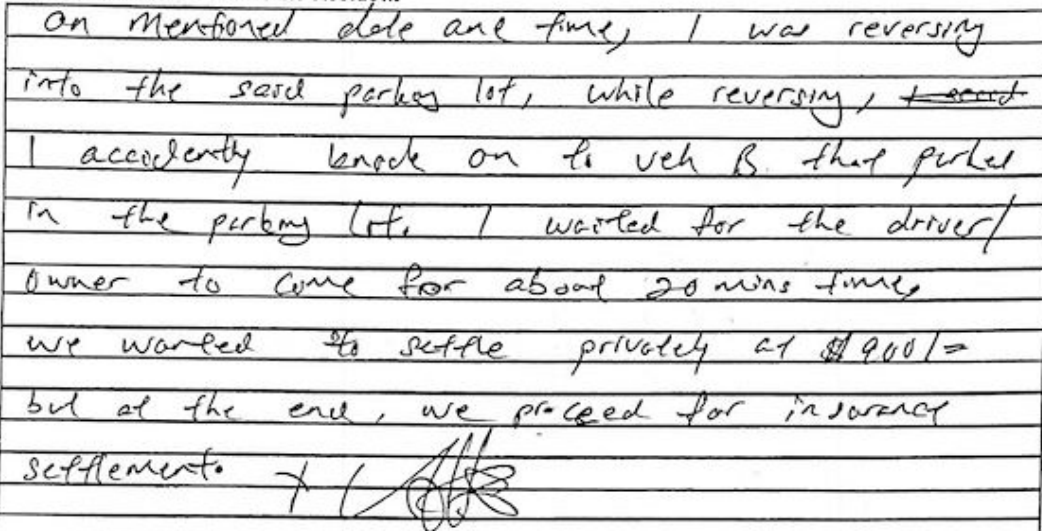 On mentioned date and time, I was reversing
into the said parking lot, while reversing,
I accidently knock on to veh B. that parked
in the parking lot. I waited for the driver/
owner to come for about 20 mins time,
we wanted to settle privately at $900/=
but at the end, we proceed for insurance
settlement.